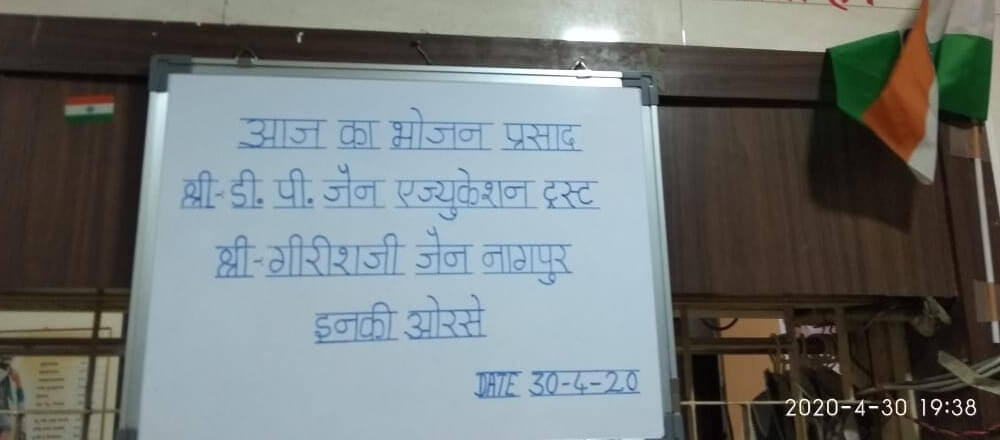 आज का भोजन प्रसाद
श्री-डी. पी. जैन एज्युकेशन ट्रस्ट
श्री-गीरीशजी जैन नागपुर
इनकी ओरसे
DATE 30-4-20
2020-4-30 19:38